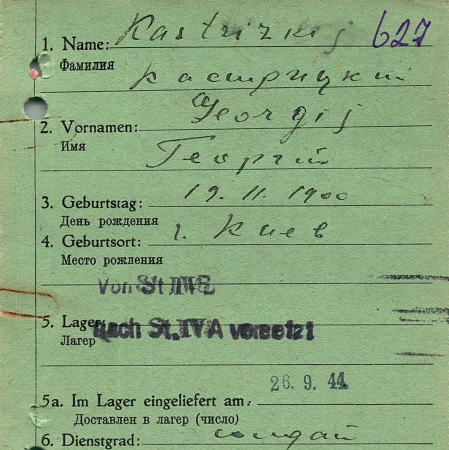 1. Name: Kastrizkij 627
Фамилия Кастрицкий
2. Vornamen: Georgij
Имя Георгий
3. Geburtstag: 19. 11. 1900
День рождения
4. Geburtsort: г. Киев
Место рождения
Von St IVB
5. Lager: nach St. IV A versetzt
Лагер
26. 9. 44
5a. Im Lager eingeliefert am:
Доставлен в лагер (число)
6. Dienstgrad: солдат